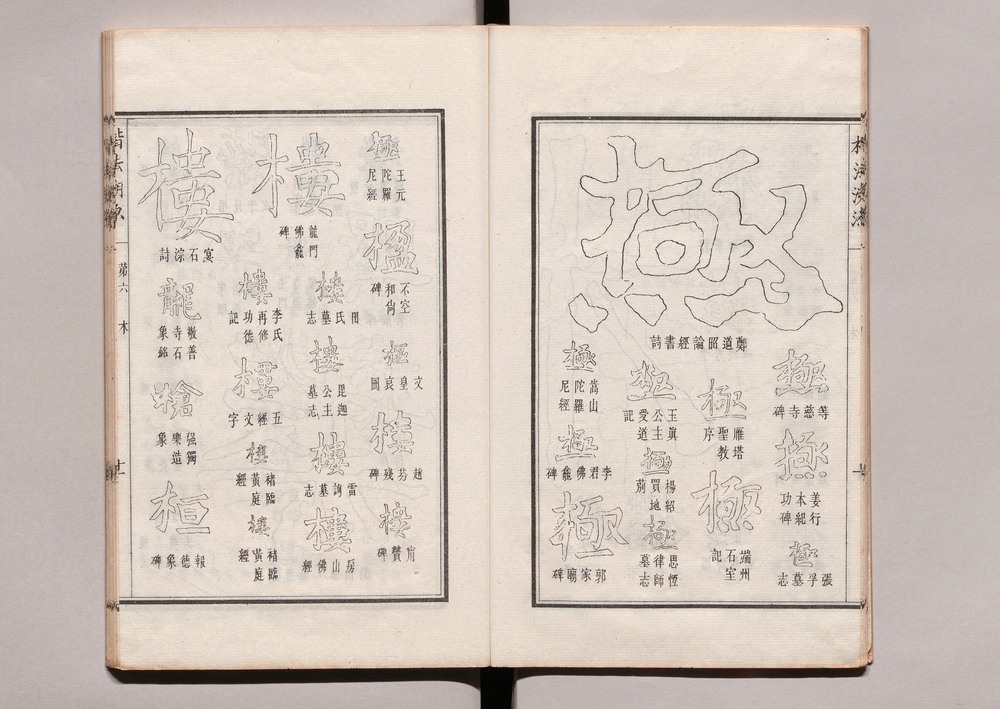 極
鄭道昭論經書詩
極
等慈寺碑
極
姜行本紀功碑
極
張孚墓志
極
雁塔聖教序
極
端州石室記
極
玉真公主受道記
極
楊紹買地莂
極
思恆律師墓志
極
嵩山陀羅尼經
極
李君佛龕碑
極
郭家廟碑
極
王元陀羅尼經
不空和尚碑
文皇哀冊
樓
趙芬殘碑
樓
甯贙碑
樓
龍門佛龕碑
樓
田氏墓志
樓
毘迦公主墓志
樓
雷詢墓志
樓
房山佛經
樓
李氏再修功德記
樓
五經文字
樓
褚臨黃庭經
樓
褚臨黃庭經
樓
窊石淙詩
敬善寺石象銘
強獨樂造象
桓
報德象碑
楷法溯源
第六
木